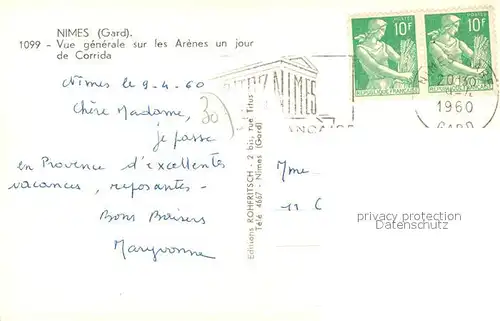 NIMES (Gard).
1099 - Vue générale sur les Arènes un jour
de Corrida
Nimes le 9-4-60
30
Chère Madame,
je passe
en Provence d'excellentes
vacances, reposantes -
Bons Baisers
Maryvonne
Editions ROHFRITSCH - 2 bis, rue Titus
Télé 4667 - Nîmes (Gard)
NIMES
POSTES
10F
REPUBLIQUE FRANÇAISE
POSTES
10F
REPUBLIQUE FRANÇAISE
1960
GARD
Mme
11
privacy protection
Datenschutz